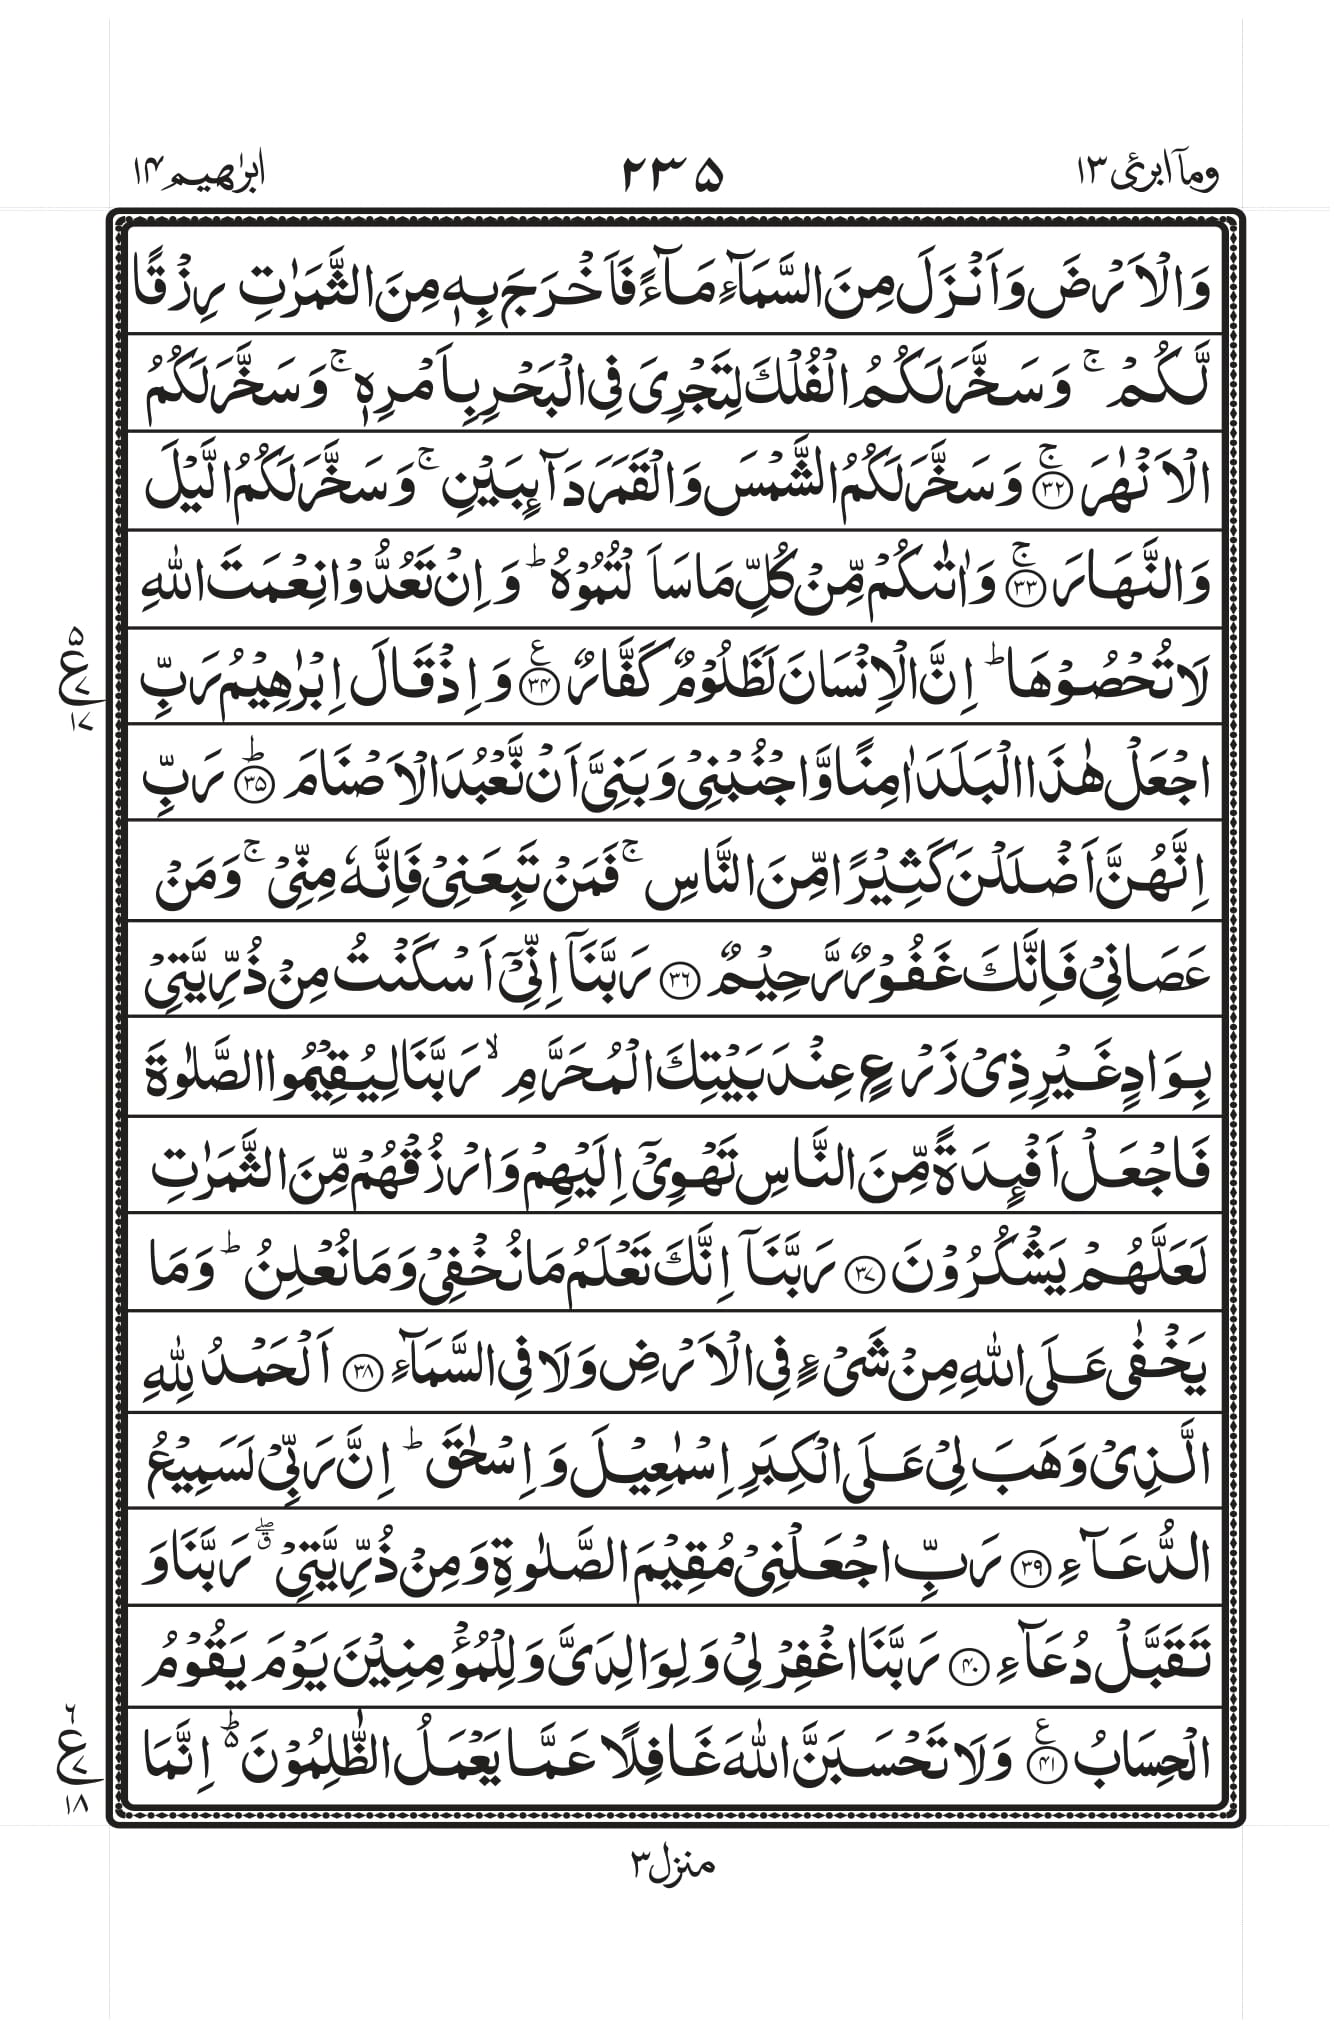 وماۤ ابرئ ١٣
٢٣۵
ابرٰهيم ١۴
وَالْاَرْضَ وَاَنْزَلَ مِنَ السَّمَآءِ مَآءً فَاَخْرَجَ بِهٖ مِنَ الثَّمَرٰتِ رِزْقًا
لَّكُمْ ۚ وَسَخَّرَ لَكُمُ الْفُلْكَ لِتَجْرِىَ فِى الْبَحْرِ بِاَمْرِهٖ ۚ وَسَخَّرَ لَكُمُ
الْاَنْهٰرَ ۚ﴿٣٢﴾ وَسَخَّرَ لَكُمُ الشَّمْسَ وَالْقَمَرَ دَآئِبَيْنِ ۚ وَسَخَّرَ لَكُمُ الَّيْلَ
وَالنَّهَارَ ۚ﴿٣٣﴾ وَاٰتٰىكُمْ مِّنْ كُلِّ مَا سَاَلْتُمُوْهُ ؕ وَاِنْ تَعُدُّوْا نِعْمَتَ اللّٰهِ
لَا تُحْصُوْهَا ؕ اِنَّ الْاِنْسَانَ لَظَلُوْمٌ كَفَّارٌ ﴿٣۴﴾ ع وَاِذْ قَالَ اِبْرٰهِيْمُ رَبِّ
۵
ع
٧
١٧
اجْعَلْ هٰذَا الْبَلَدَ اٰمِنًا وَّاجْنُبْنِىْ وَبَنِىَّ اَنْ نَّعْبُدَ الْاَصْنَامَ ؕ﴿٣۵﴾ رَبِّ
اِنَّهُنَّ اَضْلَلْنَ كَثِيْرًا مِّنَ النَّاسِ ۚ فَمَنْ تَبِعَنِىْ فَاِنَّهٗ مِنِّىْ ۚ وَمَنْ
عَصَانِىْ فَاِنَّكَ غَفُوْرٌ رَّحِيْمٌ ﴿٣٦﴾ رَبَّنَآ اِنِّىْۤ اَسْكَنْتُ مِنْ ذُرِّيَّتِىْ
بِوَادٍ غَيْرِ ذِىْ زَرْعٍ عِنْدَ بَيْتِكَ الْمُحَرَّمِ ۙ رَبَّنَا لِيُقِيْمُوا الصَّلٰوةَ
فَاجْعَلْ اَفْئِدَةً مِّنَ النَّاسِ تَهْوِىْۤ اِلَيْهِمْ وَارْزُقْهُمْ مِّنَ الثَّمَرٰتِ
لَعَلَّهُمْ يَشْكُرُوْنَ ﴿٣٧﴾ رَبَّنَآ اِنَّكَ تَعْلَمُ مَا نُخْفِىْ وَمَا نُعْلِنُ ؕ وَمَا
يَخْفٰى عَلَى اللّٰهِ مِنْ شَىْءٍ فِى الْاَرْضِ وَلَا فِى السَّمَآءِ ﴿٣٨﴾ اَلْحَمْدُ لِلّٰهِ
الَّذِىْ وَهَبَ لِىْ عَلَى الْكِبَرِ اِسْمٰعِيْلَ وَاِسْحٰقَ ؕ اِنَّ رَبِّىْ لَسَمِيْعُ
الدُّعَآءِ ﴿٣٩﴾ رَبِّ اجْعَلْنِىْ مُقِيْمَ الصَّلٰوةِ وَمِنْ ذُرِّيَّتِىْ ۖق رَبَّنَا وَ
تَقَبَّلْ دُعَآءِ ﴿۴٠﴾ رَبَّنَا اغْفِرْ لِىْ وَلِوَالِدَىَّ وَلِلْمُؤْمِنِيْنَ يَوْمَ يَقُوْمُ
الْحِسَابُ ﴿۴١﴾ ع وَلَا تَحْسَبَنَّ اللّٰهَ غَافِلًا عَمَّا يَعْمَلُ الظّٰلِمُوْنَ ؕ۵ اِنَّمَا
٦
ع
٧
١٨
منزل ٣